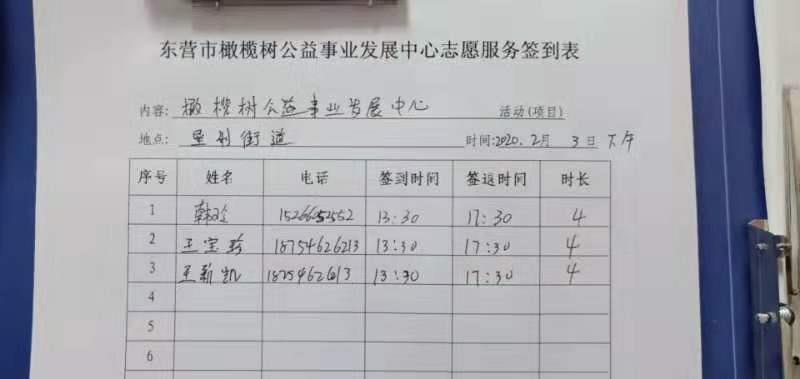 东营市橄榄树公益事业发展中心志愿服务签到表
内容: 橄榄树公益事业发展中心 活动(项目)
地点: 垦利街道 时间:2020.2月 3日 下午
序号 姓名 电话 签到时间 签退时间 时长
1 韩玲 13:30 17:30 4
2 王宝珍 18754626213 13:30 17:30 4
3 王新凯 13:30 17:30 4
4
5
6